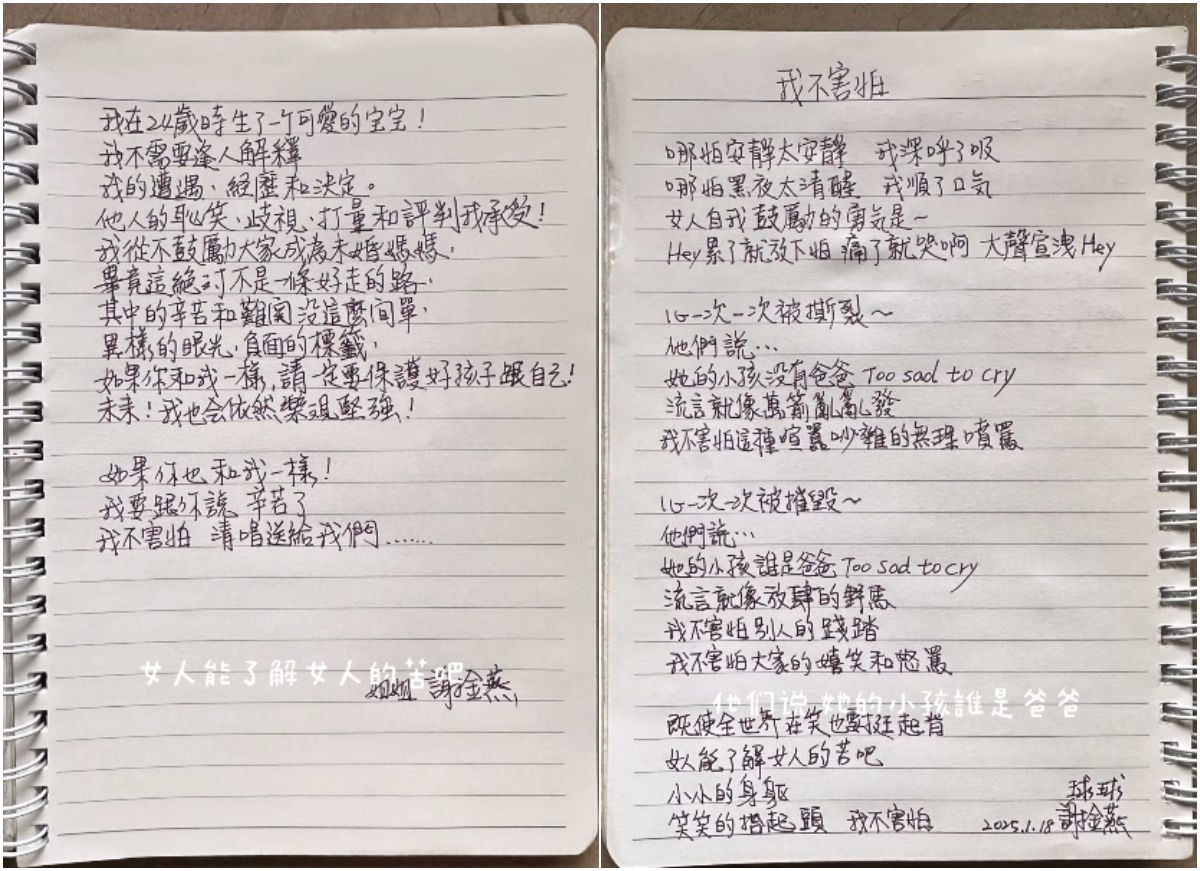 我在24歲時生了一个可愛的宝宝！
我不需要逢人解釋
我的遭遇、經歷和決定。
他人的恥笑、歧視、打量和評判我承受！
我從不鼓勵大家成為未婚媽媽，
畢竟這絕对不是一條好走的路，
其中的辛苦和難関没這麼间單，
異樣的眼光，負面的標籤，
如果你和我一樣，請一定要保護好孩子跟自己！
未来！我也会依然樂观堅強！
如果你也和我一樣！
我要跟你說 辛苦了
我不害怕 清唱送給我們.......
女人能了解女人的苦吧
姐姐 謝金燕
我不害怕
哪怕安靜太安靜 我深呼了吸
哪怕黑夜太清醒 我順了口氣
女人自我鼓勵的勇氣是～
Hey累了就放下怕 痛了就哭啊 大聲宣洩Hey
心一次一次被撕裂～
他們說...
她的小孩没有爸爸 Too sad to cry
流言就像萬箭亂亂發
我不害怕這種喧囂吵雜的無理嘖罵
心一次一次被摧毀～
他們說...
她的小孩誰是爸爸 Too sad to cry
流言就像放肆的野馬
我不害怕別人的踐踏
我不害怕大家的嬉笑和怒罵
他们说 她的小孩誰是爸爸
既使全世界在笑也要挺起背
女人能了解女人的苦吧
小小的身軀 球球
笑笑的抬起頭 我不害怕 2025.1.18 謝金燕